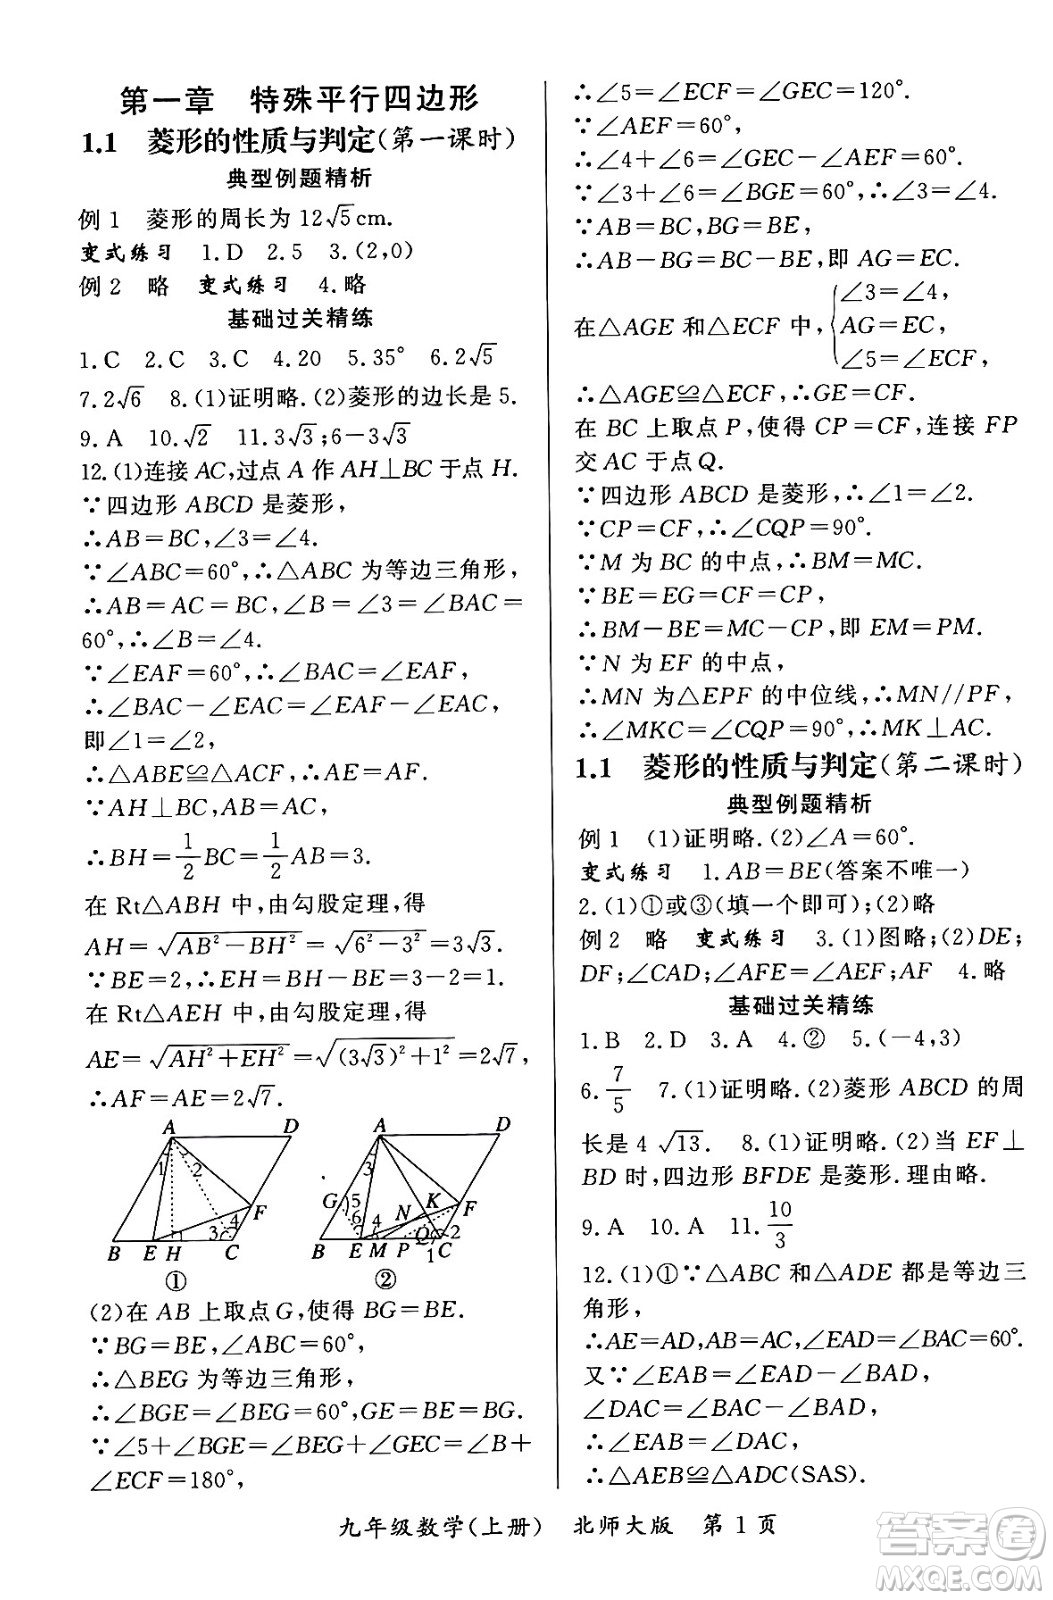 第一章 特殊平行四边形
1.1 菱形的性质与判定(第一课时)
典型例题精析
例1 菱形的周长为12√5cm.
变式练习 1.D 2.5 3.(2,0)
例2 略 变式练习 4.略
基础过关精练
1.C 2.C 3.C 4.20 5.35° 6.2√5
7.2√6 8.(1)证明略.(2)菱形的边长是5.
9.A 10.√2 11.3√3;6-3√3
12.(1)连接AC,过点A作AH⊥BC于点H.
∵四边形ABCD是菱形,
∴AB=BC,∠3=∠4.
∵∠ABC=60°,∴△ABC为等边三角形,
∴AB=AC=BC,∠B=∠3=∠BAC=
60°,∴∠B=∠4.
∵∠EAF=60°,∴∠BAC=∠EAF,
∴∠BAC-∠EAC=∠EAF-∠EAC,
即∠1=∠2,
∴△ABE≌△ACF,∴AE=AF.
∵AH⊥BC,AB=AC,
∴BH=1/2BC=1/2AB=3.
在Rt△ABH中,由勾股定理,得
AH=√(AB²-BH²)=√(6²-3²)=3√3.
∵BE=2,∴EH=BH-BE=3-2=1.
在Rt△AEH中,由勾股定理,得
AE=√(AH²+EH²)=√((3√3)²+1²)=2√7,
∴AF=AE=2√7.
A D A D
1 2 3
G 5 N K F
F 6 4
3 4 Q 2
B E H C B E M P 1 C
① ②
(2)在AB上取点G,使得BG=BE.
∵BG=BE,∠ABC=60°,
∴△BEG为等边三角形,
∴∠BGE=∠BEG=60°,GE=BE=BG.
∵∠5+∠BGE=∠BEG+∠GEC=∠B+
∠ECF=180°,
∴∠5=∠ECF=∠GEC=120°.
∵∠AEF=60°,
∴∠4+∠6=∠GEC-∠AEF=60°.
∵∠3+∠6=∠BGE=60°,∴∠3=∠4.
∵AB=BC,BG=BE,
∴AB-BG=BC-BE,即AG=EC.
在△AGE和△ECF中,{∠3=∠4, AG=EC, ∠5=∠ECF,
∴△AGE≌△ECF,∴GE=CF.
在BC上取点P,使得CP=CF,连接FP
交AC于点Q.
∵四边形ABCD是菱形,∴∠1=∠2.
∵CP=CF,∴∠CQP=90°.
∵M为BC的中点,∴BM=MC.
∵BE=EG=CF=CP,
∴BM-BE=MC-CP,即EM=PM.
∵N为EF的中点,
∴MN为△EPF的中位线,∴MN//PF,
∴∠MKC=∠CQP=90°,∴MK⊥AC.
1.1 菱形的性质与判定(第二课时)
典型例题精析
例1 (1)证明略.(2)∠A=60°.
变式练习 1.AB=BE(答案不唯一)
2.(1)①或③(填一个即可);(2)略
例2 略 变式练习 3.(1)图略;(2)DE;
DF;∠CAD;∠AFE=∠AEF;AF 4.略
基础过关精练
1.B 2.D 3.A 4.② 5.(-4,3)
6.7/5 7.(1)证明略.(2)菱形ABCD的周
长是4√13. 8.(1)证明略.(2)当EF⊥
BD时,四边形BFDE是菱形.理由略.
9.A 10.A 11.10/3
12.(1)①∵△ABC和△ADE都是等边三
角形,
∴AE=AD,AB=AC,∠EAD=∠BAC=60°.
又∵∠EAB=∠EAD-∠BAD,
∠DAC=∠BAC-∠BAD,
∴∠EAB=∠DAC,
∴△AEB≌△ADC(SAS).
九年级数学(上册) 北师大版 第1页
答案圈